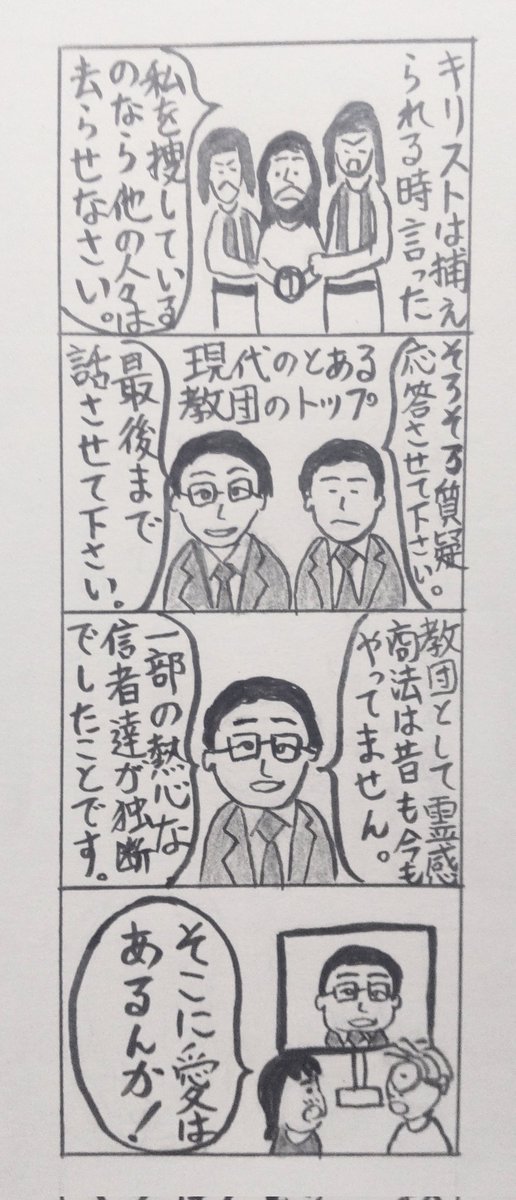 キリストは捕え
られる時言った
私を捜している
のなら他の人々は
去らせなさい。
現代のとある
教団のトップ
そろそろ質疑
応答させて下さい。
最後まで
話させて下さい。
教団として霊感
商法は昔も今も
やってません。
一部の熱心な
信者達が独断
でしたことです。
そこに愛は
あるんか！